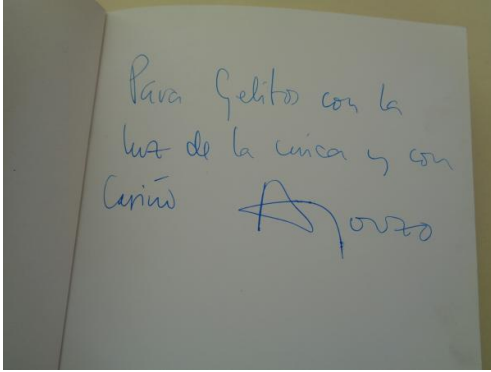 Para Gelitos con la
luz de la unica y con
Cariño Alonzo